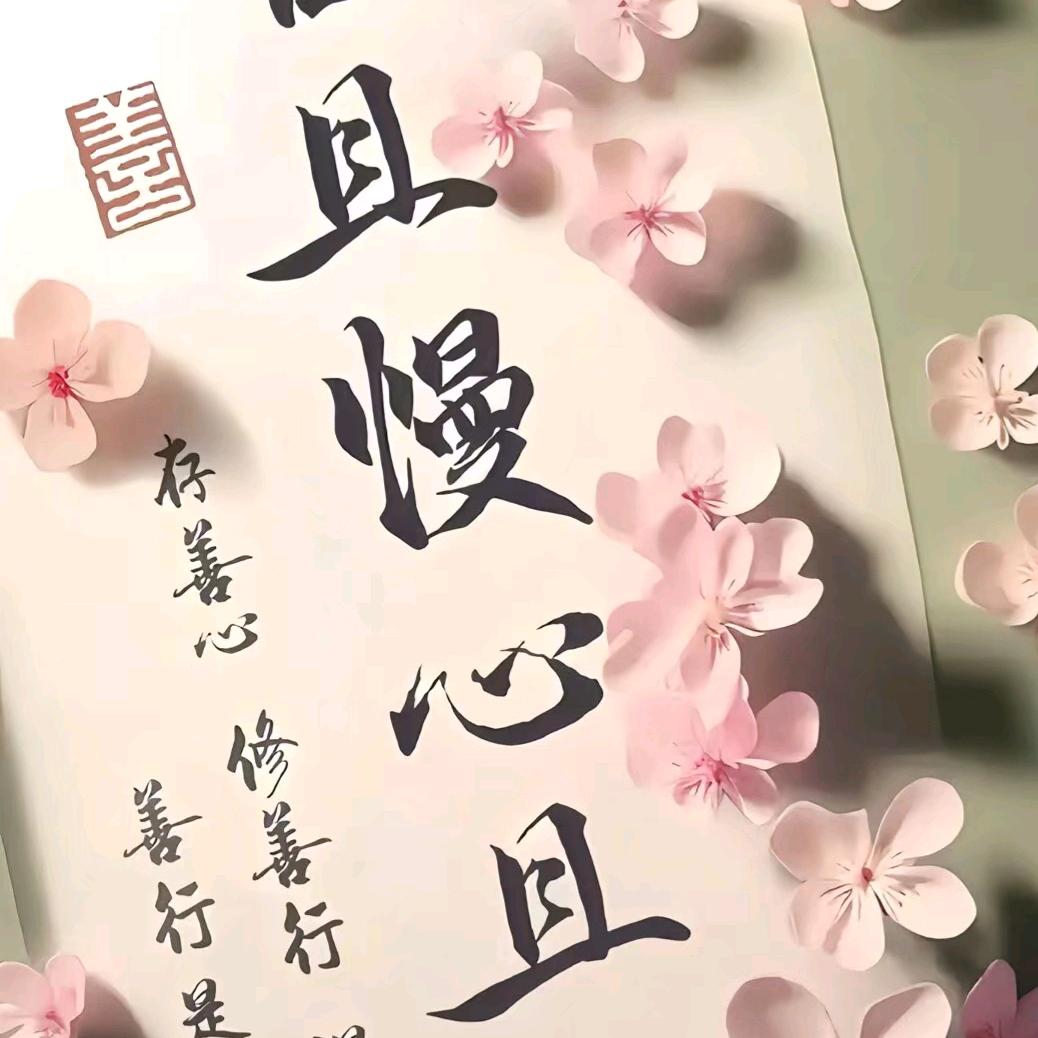 且慢心且
存善心
修善行
善行是
善